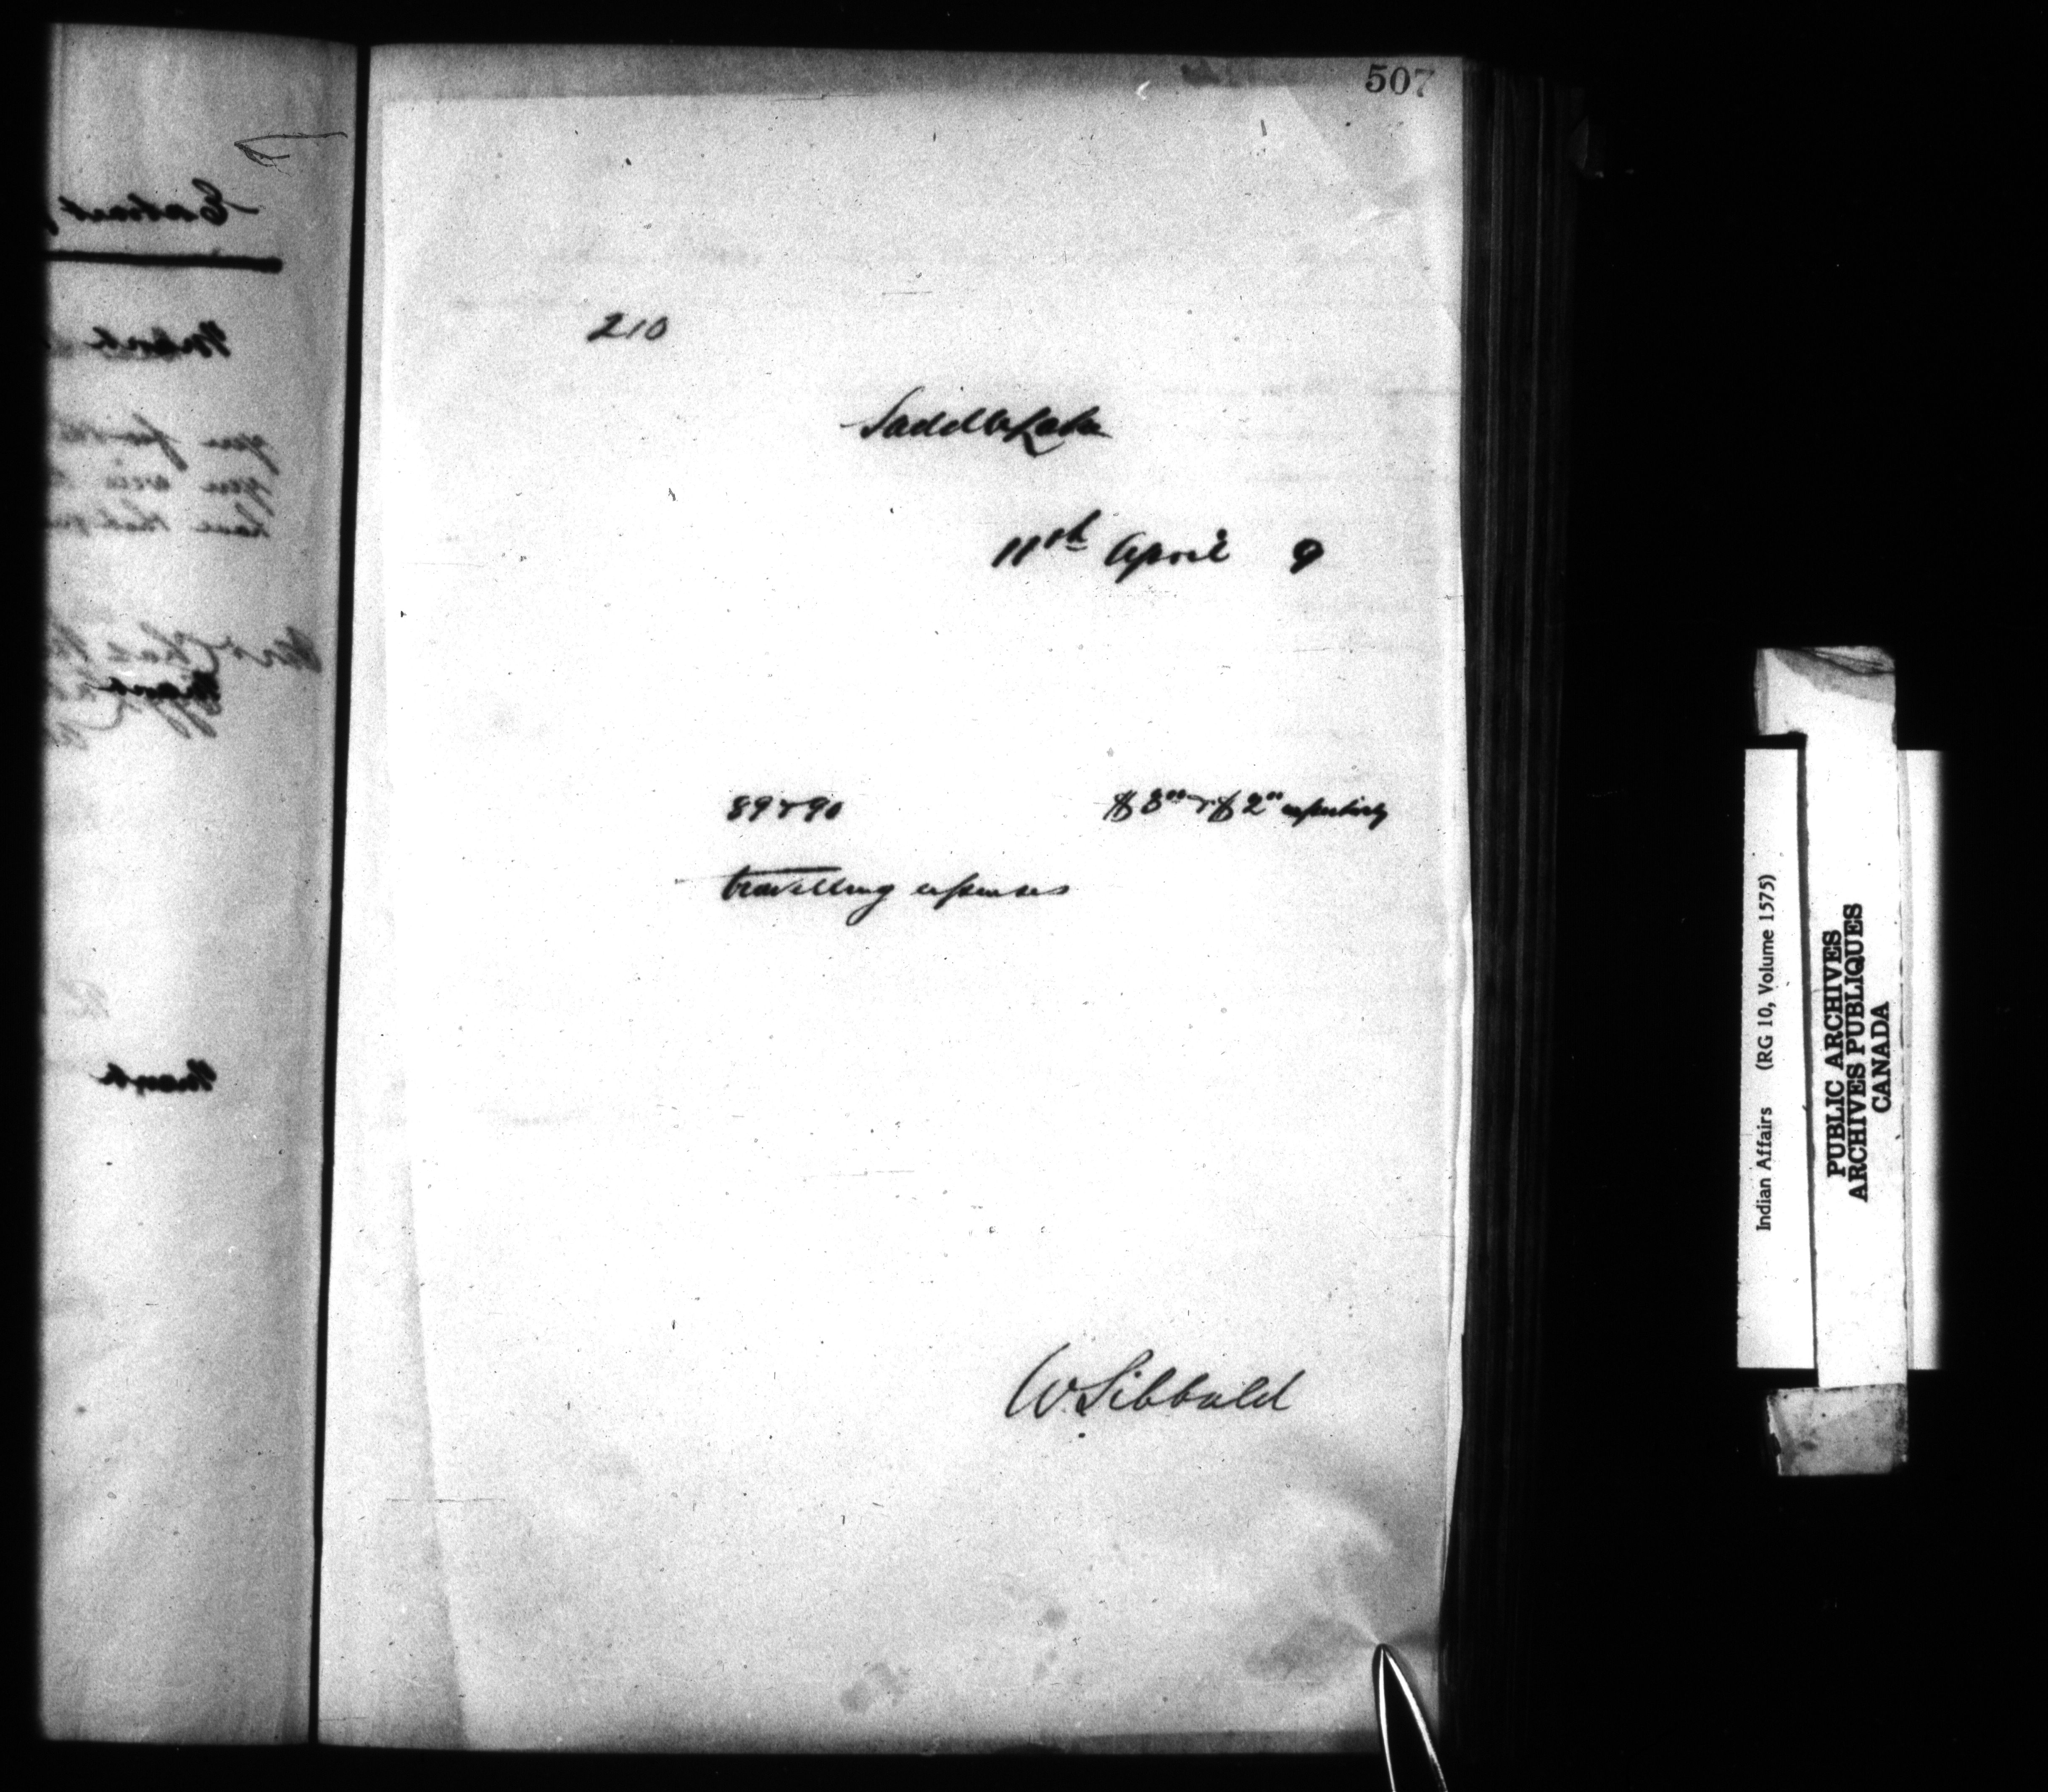 507
210
Saddle Lake
11th April 9
89 & 90 $3 00 & $2 00 respectively
travelling expenses
W. Sibbald
Indian Affairs (RG 10, Volume 1575)
PUBLIC ARCHIVES
ARCHIVES PUBLIQUES
CANADA